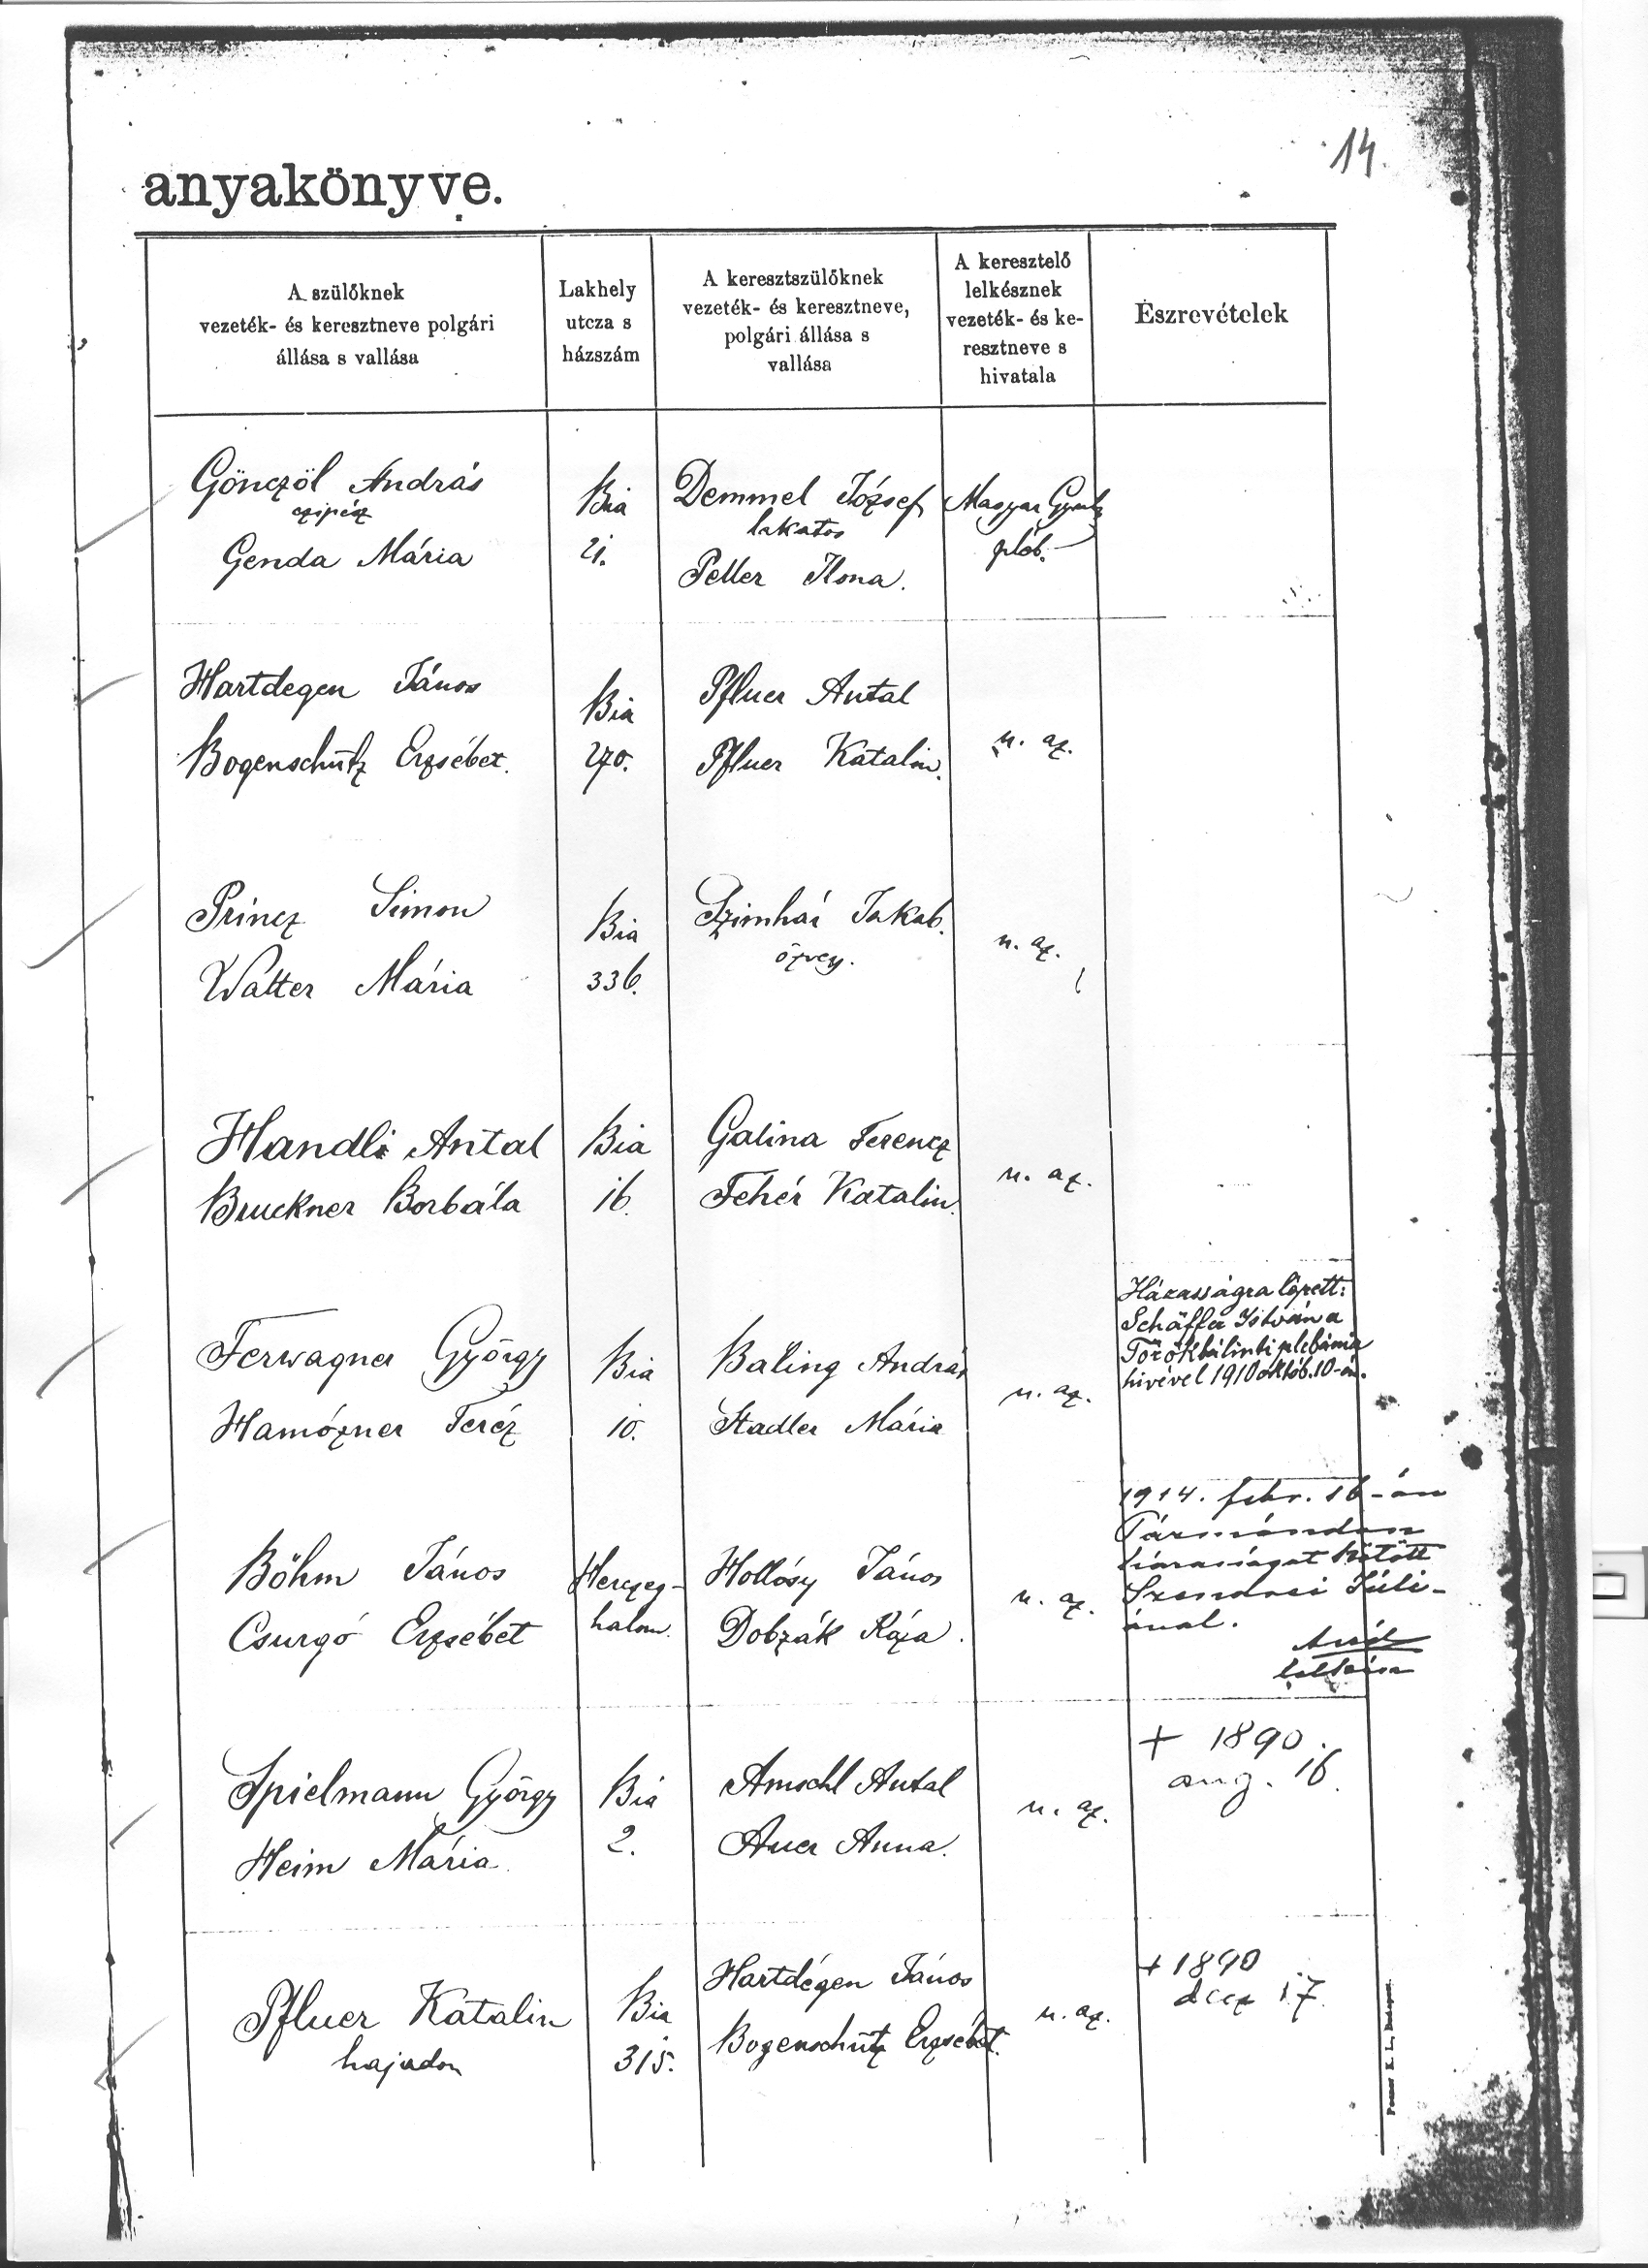 14.
anyakönyve.
A szülőknek
vezeték- és keresztneve polgári
állása s vallása
Lakhely
utcza s
házszám
A keresztszülőknek
vezeték- és keresztneve,
polgári állása s
vallása
A keresztelő
lelkésznek
vezeték- és ke-
resztneve s
hivatala
Észrevételek
Gönczöl András
czipész
Genda Mária
Bia
21.
Demmel József
lakatos
Peller Ilona.
Magyar Gyula
pléb.
Hartdegen János
Bogenschütz Erzsébet.
Bia
270.
Pfluer Antal
Pfluer Katalin.
u. az.
Princz Simon
Walter Mária
Bia
336.
Szimhár Jakab.
özvegy.
u. az.
Handli Antal
Bruckner Borbála
Bia
16.
Galina Ferencz
Fehér Katalin.
u. az.
Ferwagner György
Hamózner Teréz
Bia
10.
Baling András
Stadler Mária
u. az.
Házasságra lépett:
Schäffer István a
Törökbálinti plebánia
hivével 1910 októb. 10-én.
Böhm János
Csurgó Erzsébet
Herczeg-
halom.
Hollósy János
Dobzák Róza.
u. az.
1914. febr. 16-án
házasságot kötött
Júli-
ával.
lelkész
Spielmann György
Heim Mária.
Bia
2.
Amschl Antal
Auer Anna.
u. az.
+ 1890.
aug. 16.
Pfluer Katalin
hajadon
Bia
315.
Hartdégen János
Bogenschütz Erzsébet.
u. az.
+ 1890
decz 17.